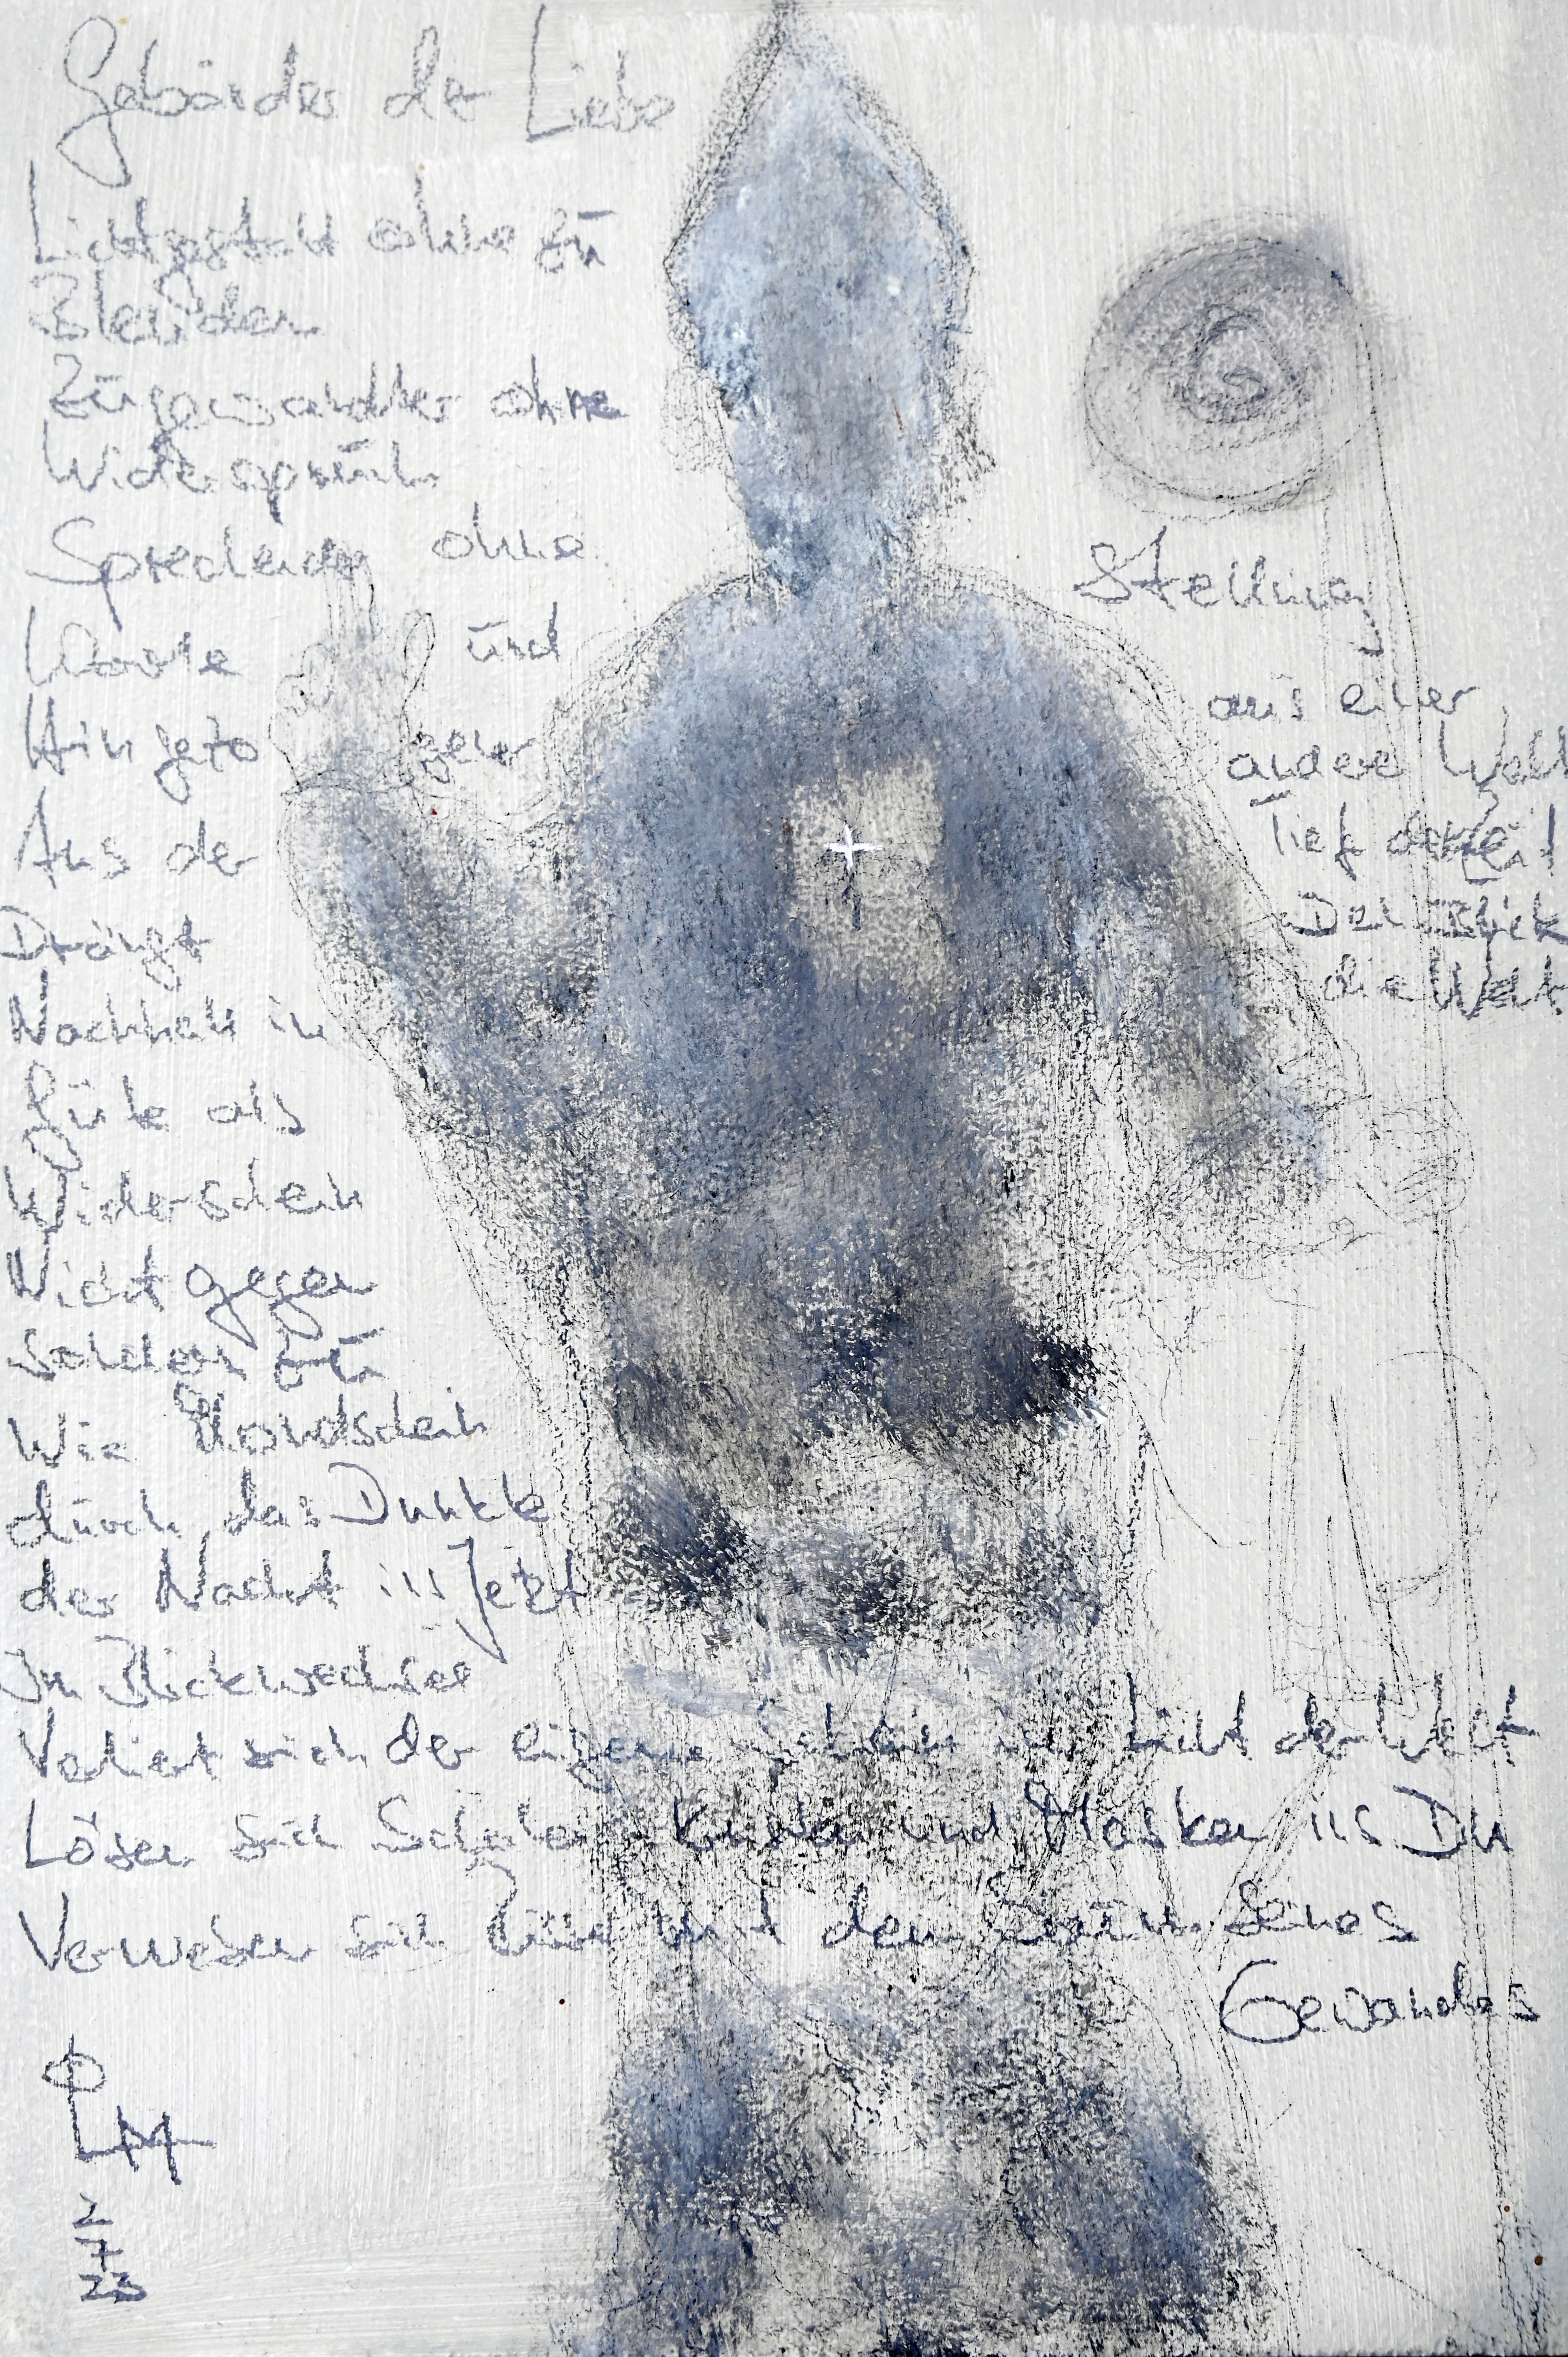 Gebärden der Liebe
Lichtgestalt ohne zu
Blenden
Zugewandter ohne
Widerspruch
Sprechender ohne
Worte und
Hingezogener
Aus der
Stellung
aus einer
andere Welt
Tief
Der Blick
die Welt
Drängt
Nachhall in
Güte als
Widerschein
Nicht gegen
sondern zu
Wie Mondschein
durch das Dunkle
der Nacht ins Jetzt
Im Blickwechsel
Verliert sich der eigene Schein im Licht der Welt
Lösen sich und Masken ins Du
Verweben sich und mit dem Saum seines
Gewandes
LM
2
7
23